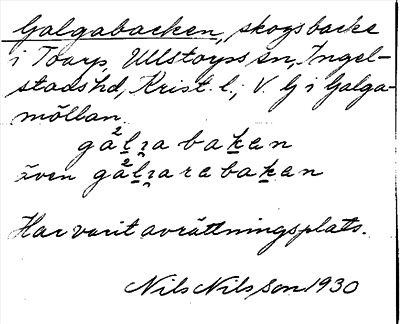 Galgabacken, skogsbacke
i Toarp, Ullstorps sn, Ingel-
stads hd, Krist. l., V. G i Galga-
möllan.
gålɿa baken
även gålɿarebaken
Har varit avrättningsplats.
Nils Nilsson 1930